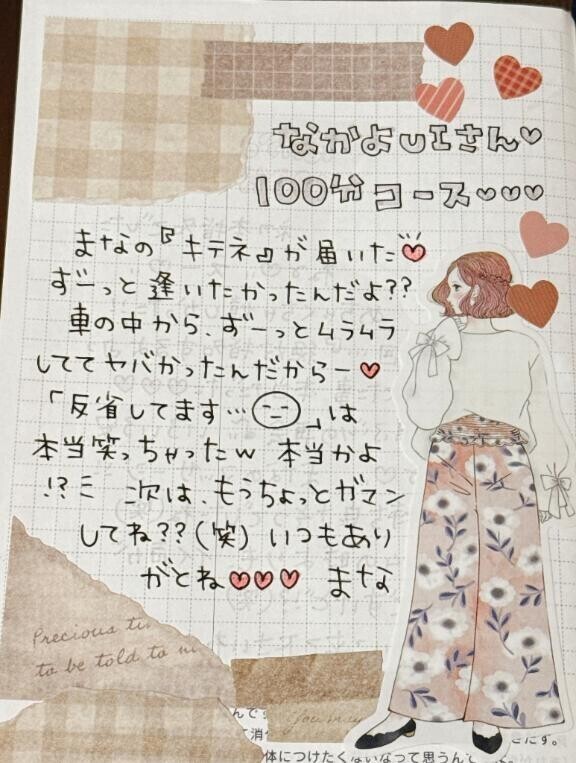 なかよUIさん♡
100分コース♡♡♡
まなの『キテネ』が届いた♡
ずーっと逢いたかったんだよ??
車の中から、ずーっとムラムラ
しててヤバかったんだからー♡
「反省してます…」は
本当笑っちゃったw 本当かよ
!?ミ 次は、もうちょっとガマン
してね??(笑) いつもあり
がとね♡♡♡ まな
Precious ti
to be told to m
journey
んで
体につけたくないなって思うんで